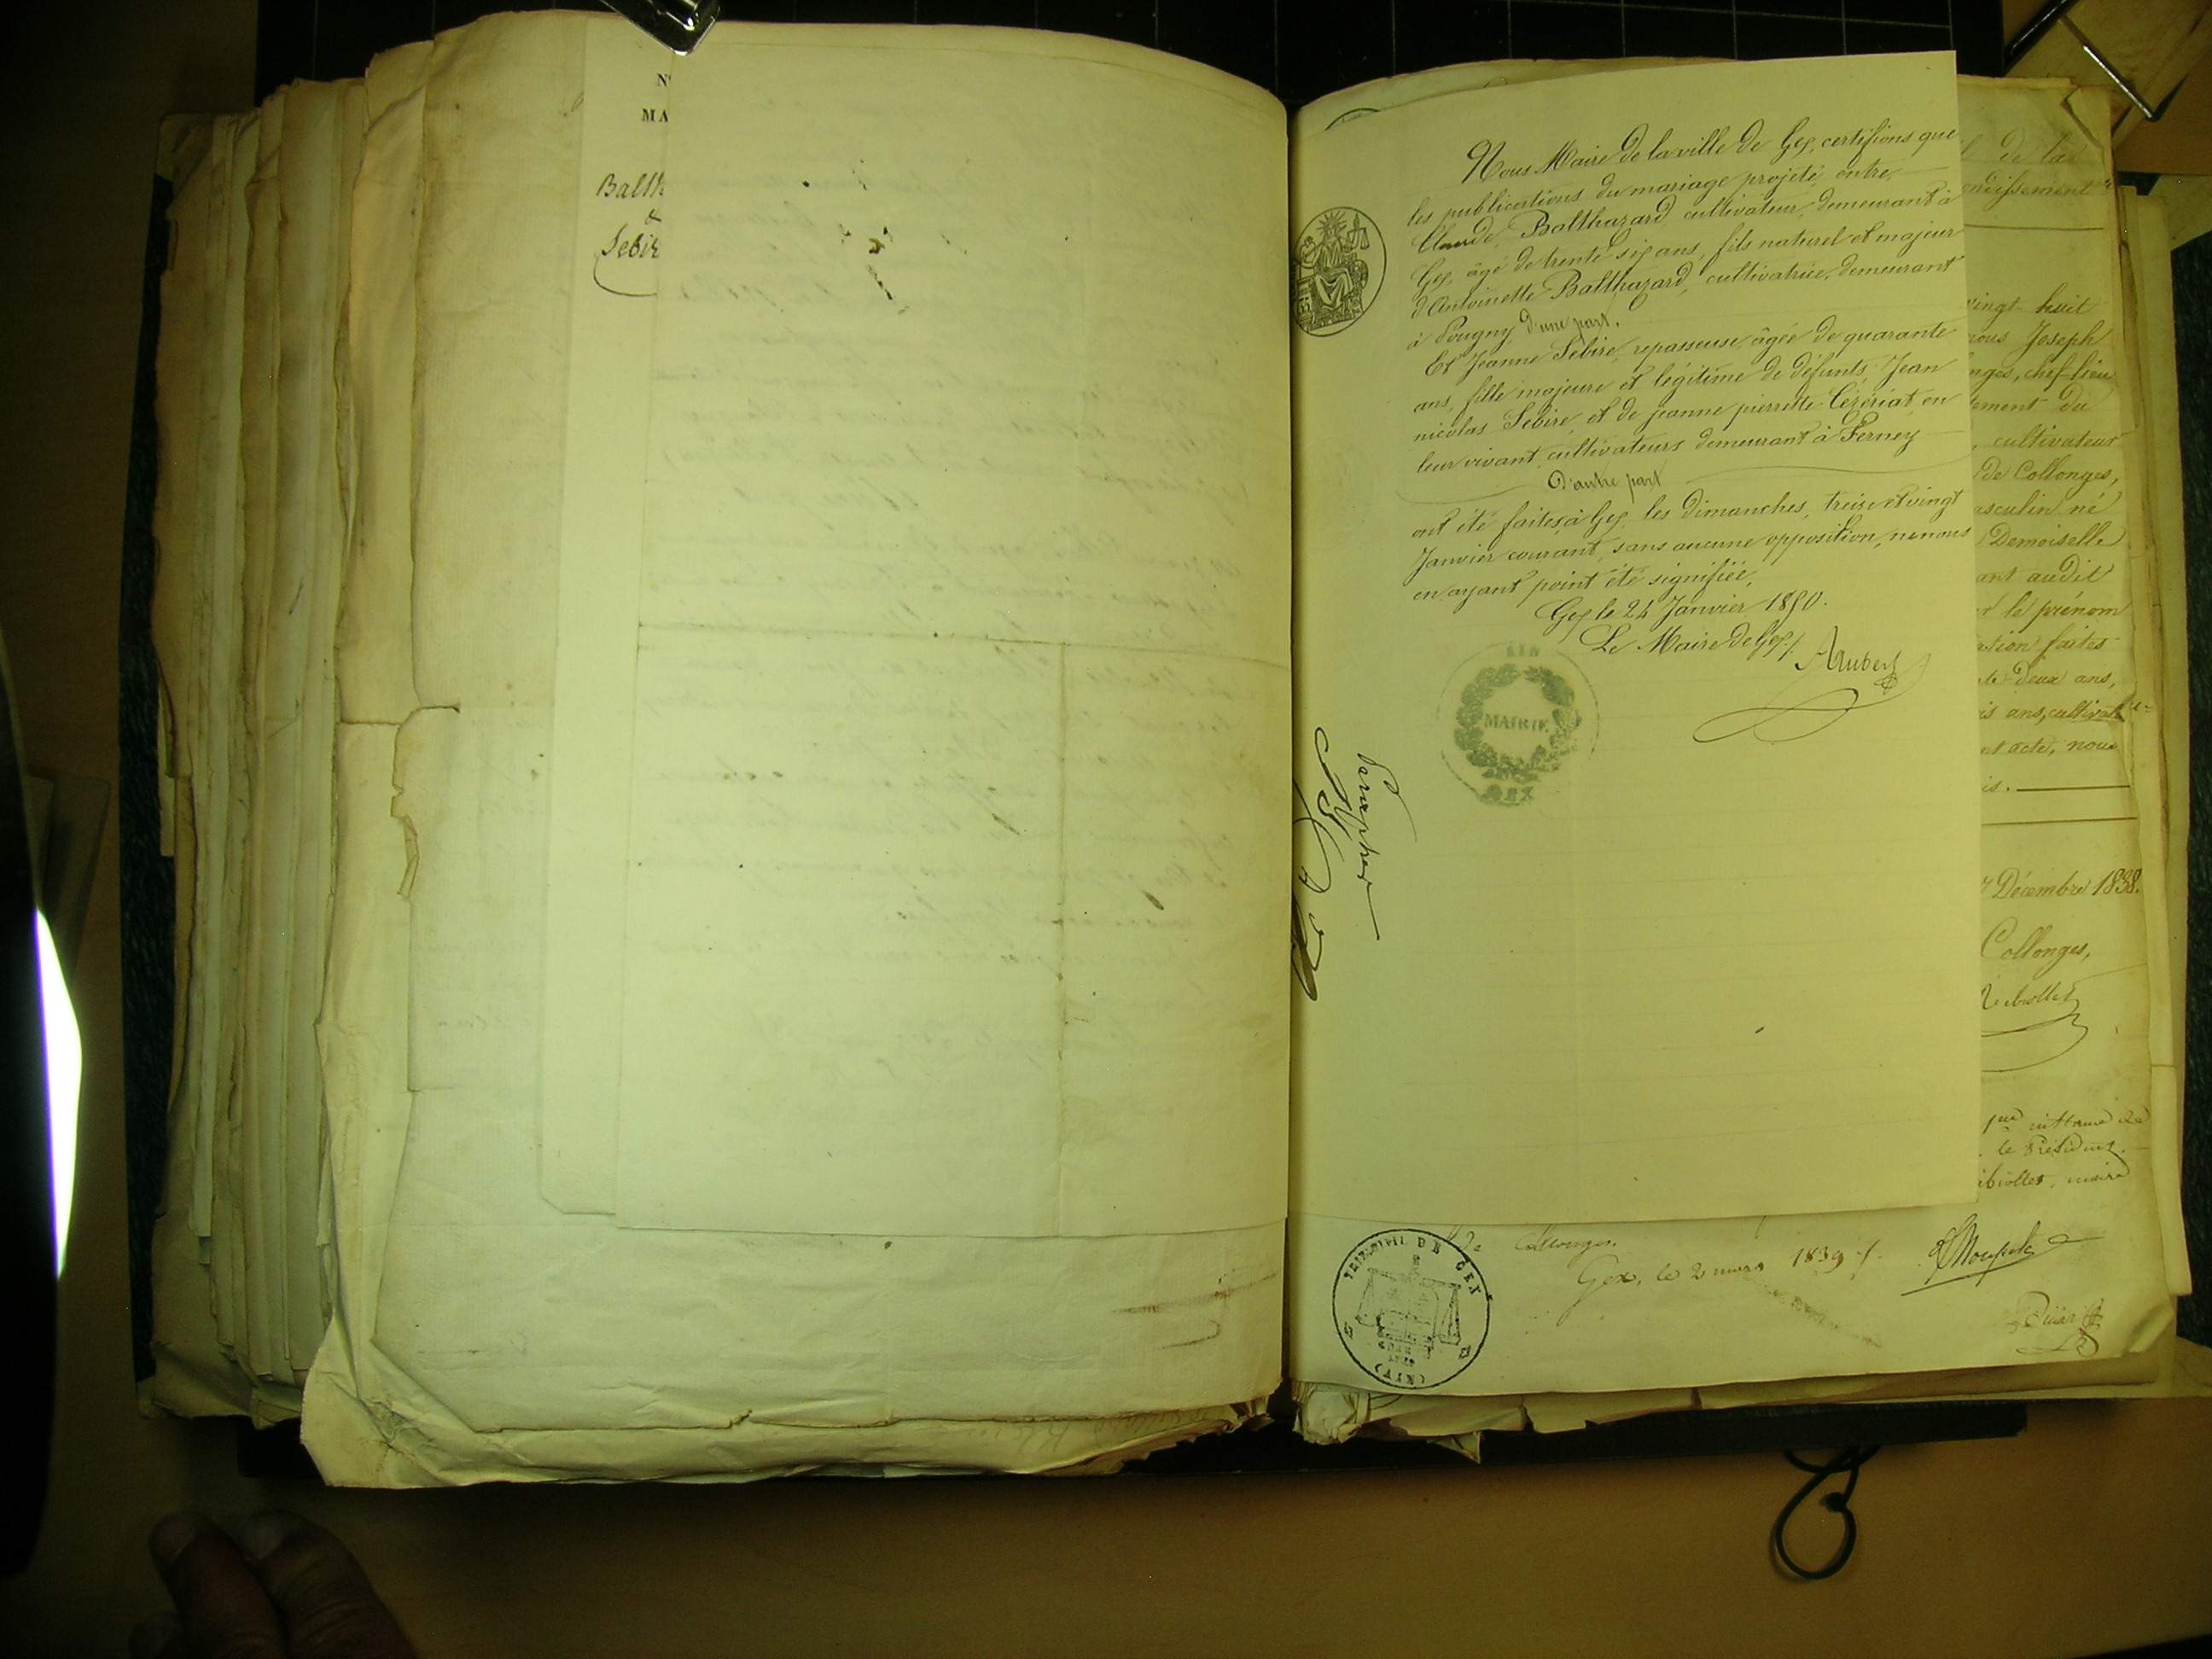 N
MA
Balth
&
Sebir
Nous Maire de la ville de Gex, certifions que
les publications du mariage projeté, entre,
Claude, Balthazard, cultivateur, demeurant à
Gex, âgé de trente six ans, fils naturel et majeur
d'Antoinette Balthazard, cultivatrice, demeurant
à Pougny, d'une part.
Et Jeanne Sebire, repasseuse, âgée de quarante
ans, fille majeure et légitime de défunts: Jean
nicolas Sébire, et de jeanne pierrette Cézériat, en
leur vivant, cultivateurs demeurant à Ferney
D'autre part
ont été faites, à Gex, les dimanches, treize et vingt
Janvier courant, sans aucune opposition, ne nous
en ayant point été signifiée.
Gex le 24 Janvier 1850.
Le Maire de Gex,
Aubert
AIN
MAIRIE
GEX
Parapher
de la
ondissement
vingt-huit
nous Joseph
nges, chef-lieu
tement du
, cultivateur
de Collonges,
asculin né
Demoiselle
ant audit
le prénom
ation faites
deux ans,
is ans, cultivat
nt acte, nous
is.
Décembre 1838.
Collonges,
1re instance de
le Président.
maire
de Collonges.
Gex, le 2 mars 1839
TRIB. CIVIL DE GEX
(AIN)